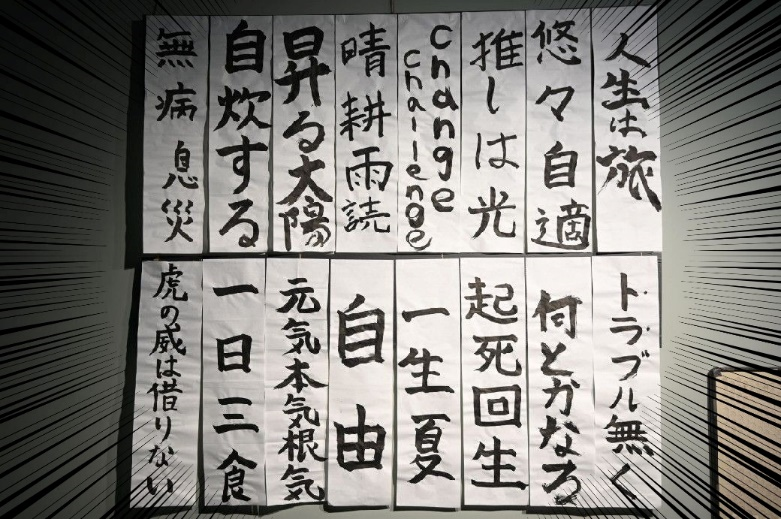 人生は旅
悠々自適
推しは光
change
challenge
晴耕雨読
昇る太陽
自炊する
無病息災
トラブル無く
何とかなる
起死回生
一生夏
自由
元気本気根気
一日三食
虎の威は借りない